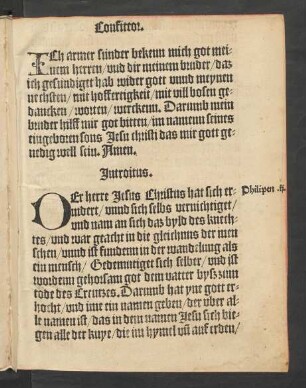 Confiteor.
ICh armer sunder bekenn mich got mei-
nem herren/ und dir meinem bruder/ das
ich gesundiget hab wider gott unnd meynen
nechsten/ mit hofferrigkeit/ mit vill bosen ge-
dancken/ worten/ werckenn. Darumb mein
bruder hilff mir got bitten/ im namenn seines
eingeboren sons Jesu christi das mir gott ge-
nedig well sein. Amen.
Introitus.
DEr herre Jesus Christus hat sich er-
Philipen .ij.
nydert/ unnd sich selbs vernichtiget/
und nam an sich das byld des knech-
tes/ und war geacht in die gleichnus der men
schen/ unnd ist fundenn in der wandelung als
ein mensch/ Gedemutiget sich selber/ und ist
wordenn gehorsam got dem vatter bysz zum
tode des Creutzes. Darumb hat yne gott er-
hocht/ und ime ein namen geben/ der uber al-
le namen ist/ das in dem namen Jesu sich bie-
gen alle der knye/ die im hymel uñ auff erden/